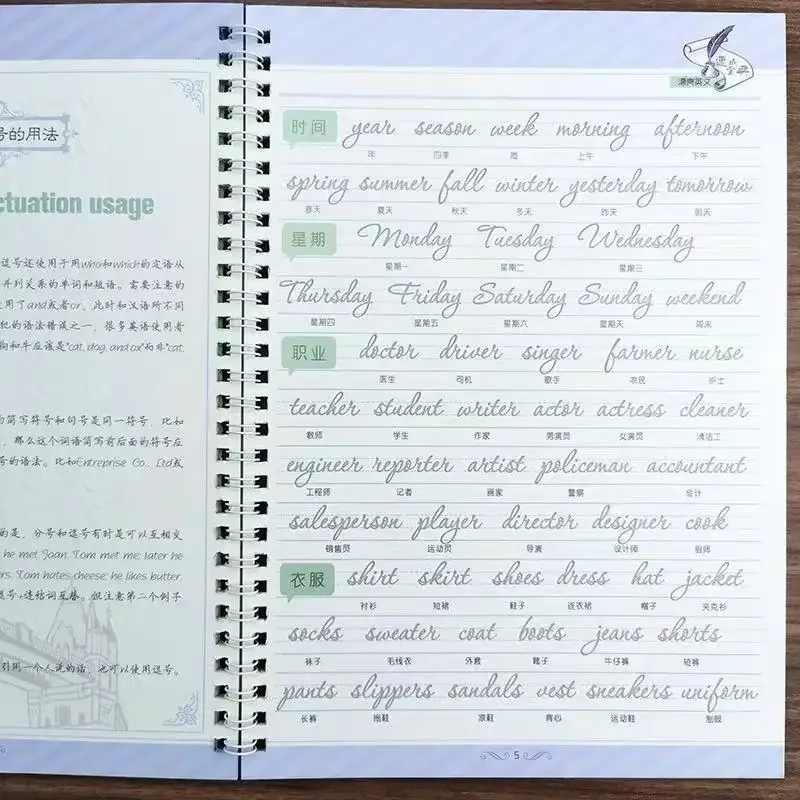 号的用法
ctuation usage
逗号还使用于用who和which的定语从
并列关系的单词和短语。需要注意的
使用了and或者or，此时和汉语所不同
犯的语法错误之一，很多英语使用者
狗和牛应该是"cat, dog, and ox"而非"cat,
简写符号和句号是同一符号，比如
，那么这个词语简写前后面的符号应
号的语法。比如Entreprise Co., Ltd或
的是，分号和逗号有时是可以互相交
he met Joan. Tom met me; later he
ers. Tom hates cheese; he likes butter.
逗号+连结词互替。但注意第二个例子
引用一个人说的话，也可以使用逗号。
漂亮英文
速成宝典
时间 year season week morning afternoon
年 四季 周 上午 下午
spring summer fall winter yesterday tomorrow
春天 夏天 秋天 冬天 昨天 明天
星期 Monday Tuesday Wednesday
星期一 星期二 星期三
Thursday Friday Saturday Sunday weekend
星期四 星期五 星期六 星期天 周末
职业 doctor driver singer farmer nurse
医生 司机 歌手 农民 护士
teacher student writer actor actress cleaner
教师 学生 作家 男演员 女演员 清洁工
engineer reporter artist policeman accountant
工程师 记者 画家 警察 会计
salesperson player director designer cook
销售员 运动员 导演 设计师 厨师
衣服 shirt skirt shoes dress hat jacket
衬衫 短裙 鞋子 连衣裙 帽子 夹克衫
socks sweater coat boots jeans shorts
袜子 毛线衣 外套 靴子 牛仔裤 短裤
pants slippers sandals vest sneakers uniform
长裤 拖鞋 凉鞋 背心 运动鞋 制服
5